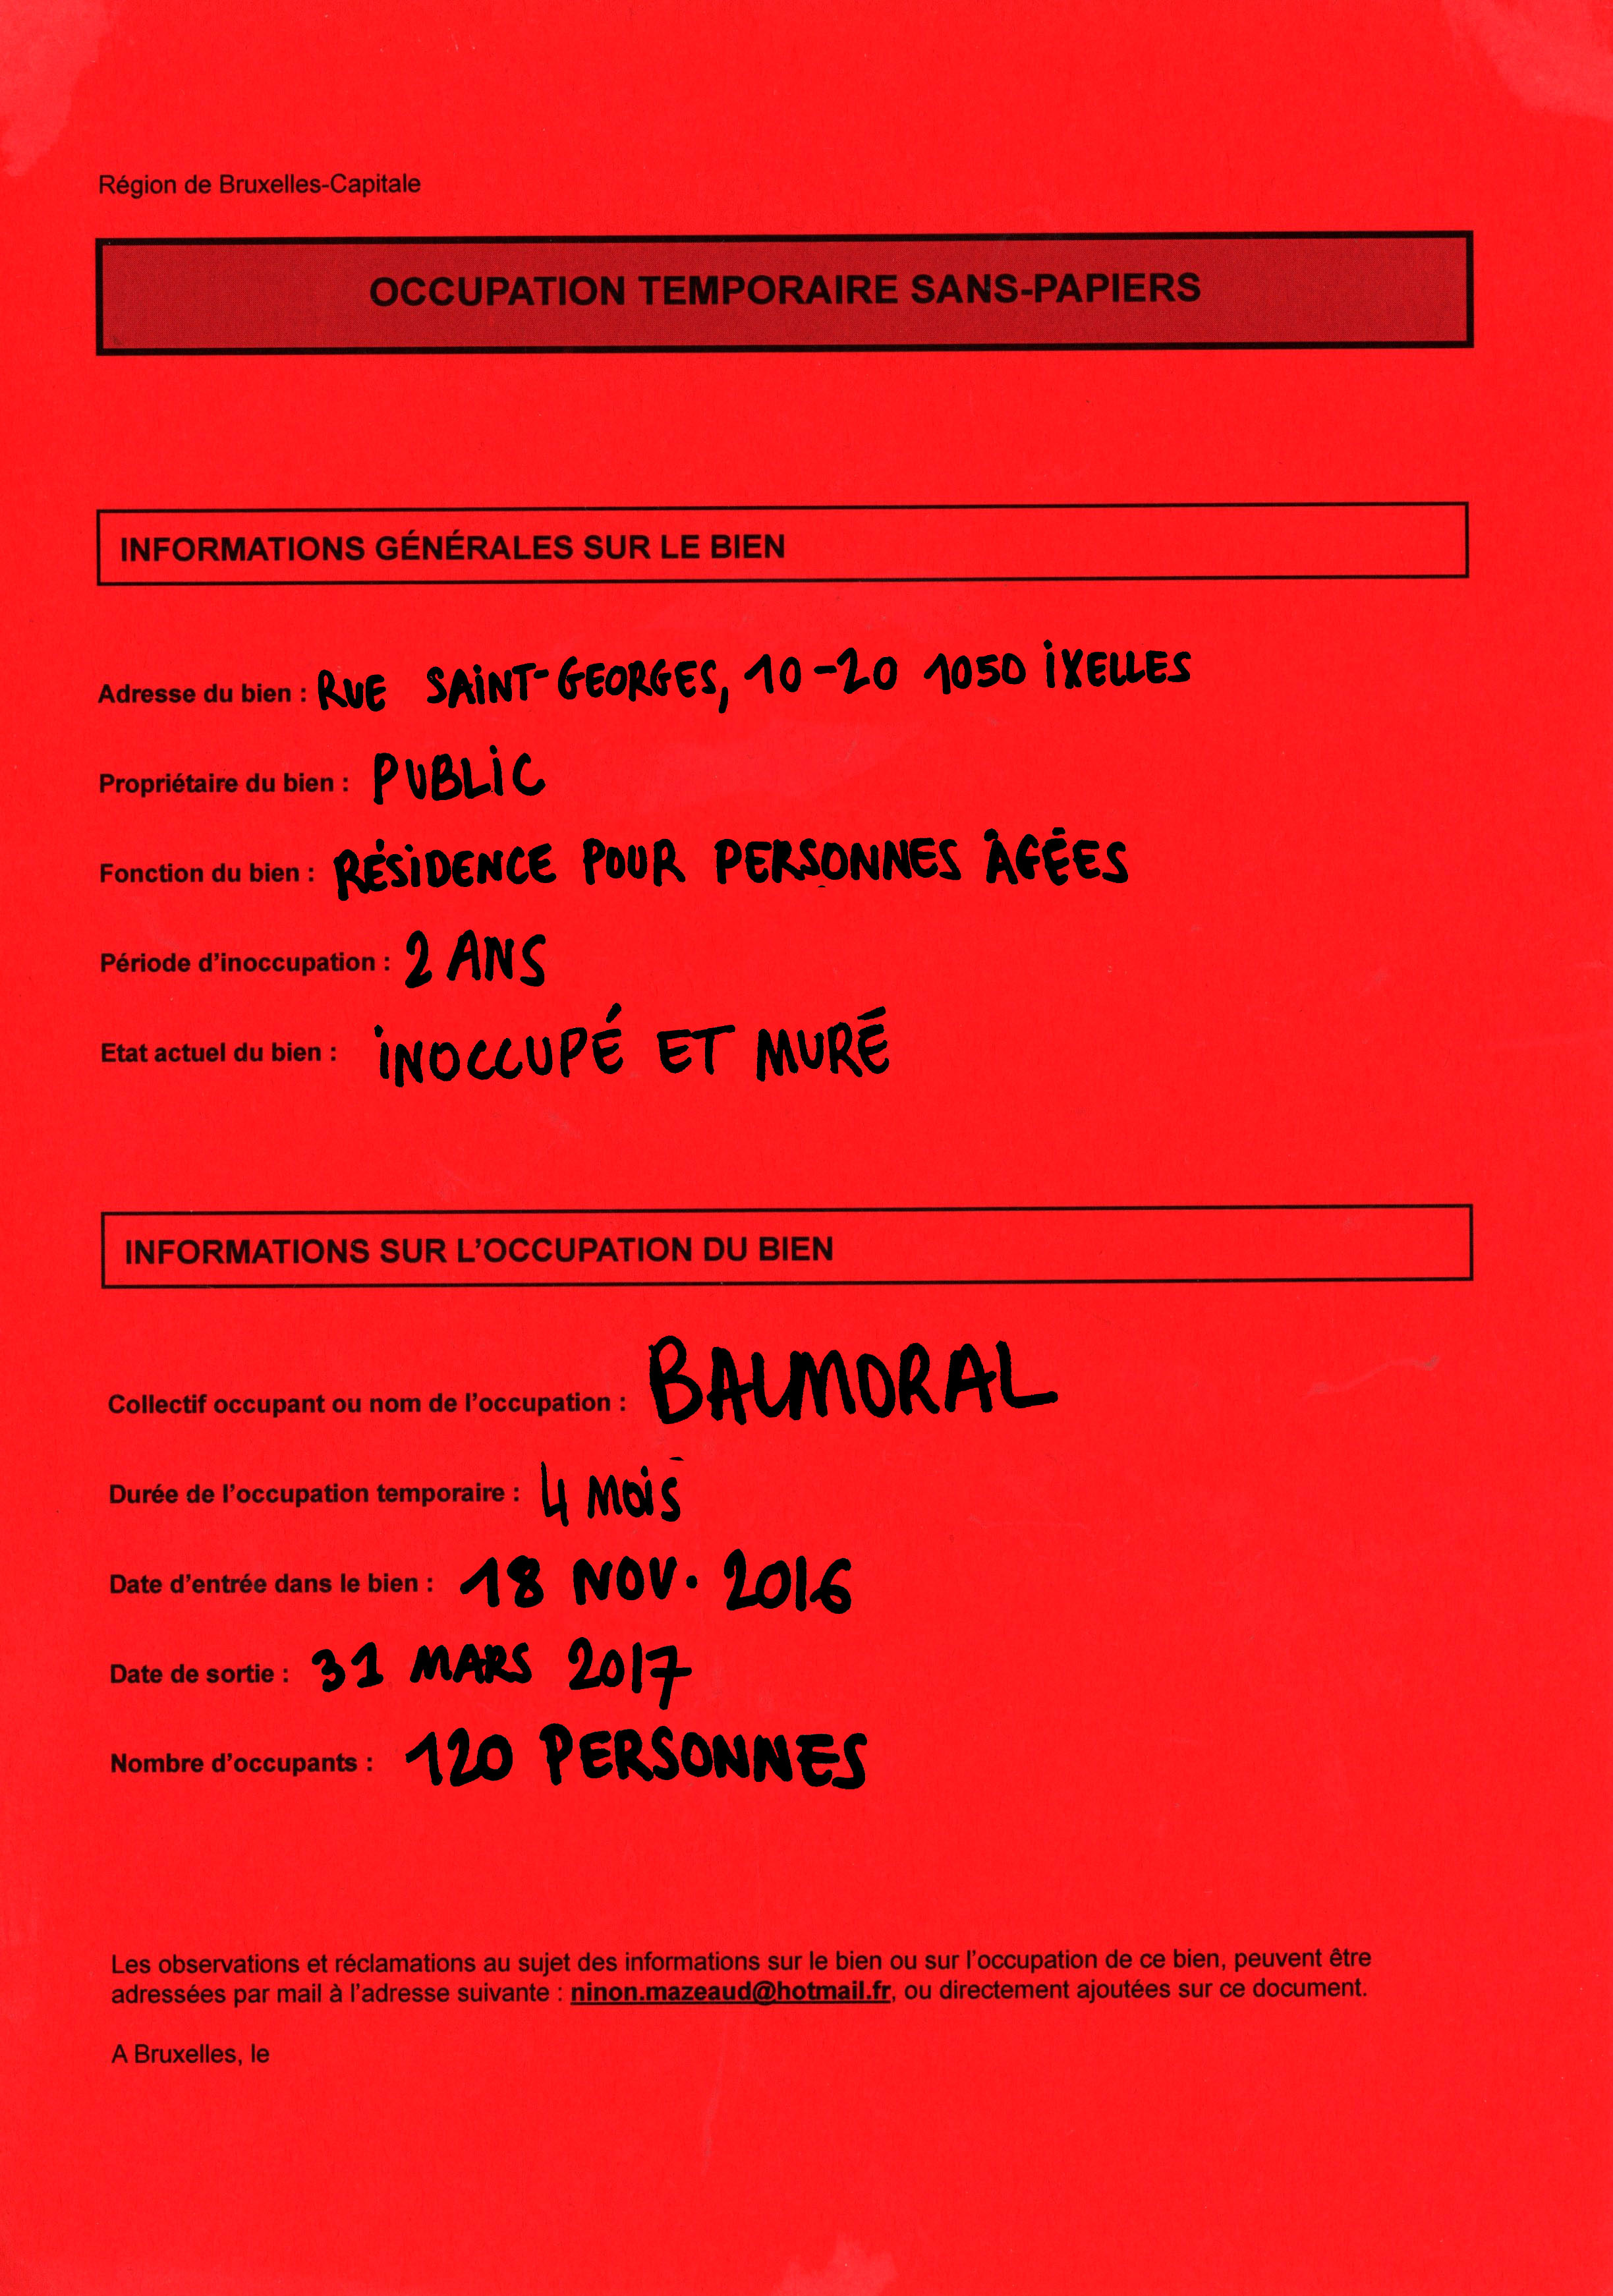 Région de Bruxelles-Capitale
OCCUPATION TEMPORAIRE SANS-PAPIERS
INFORMATIONS GÉNÉRALES SUR LE BIEN
Adresse du bien : RUE SAINT-GEORGES, 10-20 1050 IXELLES
Propriétaire du bien : PUBLIC
Fonction du bien : RÉSIDENCE POUR PERSONNES ÂGÉES
Période d'inoccupation : 2 ANS
Etat actuel du bien : INOCCUPÉ ET MURÉ
INFORMATIONS SUR L'OCCUPATION DU BIEN
Collectif occupant ou nom de l'occupation : BALMORAL
Durée de l'occupation temporaire : 4 MOIS
Date d'entrée dans le bien : 18 NOV. 2016
Date de sortie : 31 MARS 2017
Nombre d'occupants : 120 PERSONNES
Les observations et réclamations au sujet des informations sur le bien ou sur l'occupation de ce bien, peuvent être
adressées par mail à l'adresse suivante : ninon.mazeaud@hotmail.fr, ou directement ajoutées sur ce document.
A Bruxelles, le